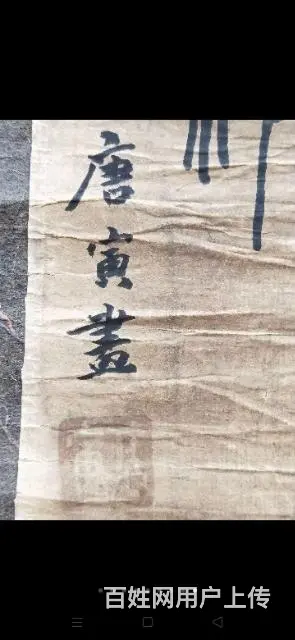 唐寅畫
百姓网用户上传